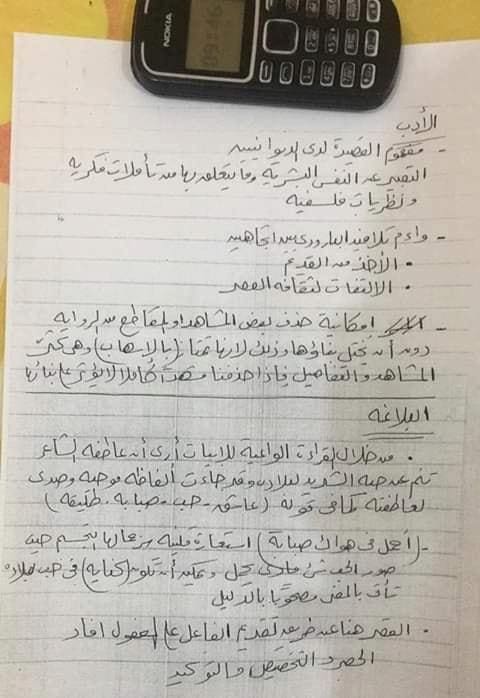 NOKIA
الأدب
- مفهوم القصيدة لدى الديوانيين
التعبير عن النفس البشرية وما يتعلق بها من تأملات فكرية
ونظريات فلسفية
- واءم تلاميذ البارودي بين اتجاهين
• الأخذ من القديم
• الالتفات لثقافة العصر
- إمكانية حذف بعض المشاهد أو المقاطع من الرواية
دون أن يختل بناؤها وذلك لأنها تمتاز (بالإسهاب) وهي تكثر
المشاهد والتفاصيل فإذا حذفنا مشهدًا كاملا لا يؤثر على بنائها
البلاغة
• من خلال القراءة الواعية للأبيات أرى أن عاطفة الشاعر
تنم عن حبه الشديد لبلاده وقد جاءت ألفاظه موحية وصدى
لعاطفته كما في قوله (عاشق - حب - صبابة - طليقة)
- (أحمل في هواك صبابة) استعارة مكنية سر جمالها التجسيم حيث
صور الحب شئ مادي يحمل ويمكن أن تكون (كناية) في حب بلاده
تأتي بالمعنى مصحوبا بالدليل
• القصر هنا عن طريق تقديم الفاعل على المفعول أفاد
الحصر والتخصيص والتوكيد